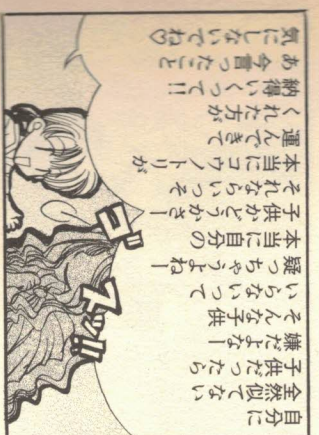 自分に
全然似てない
子供だったら
嫌だよなー
そんな子供
いらないって
疑っちゃうよねー
本当に自分の
子供かどうかさー
それならいっそ
本当にコウノトリが
運んできて
くれた方が
納得いくって!!
あ今言ったこと
気にしないでね♡